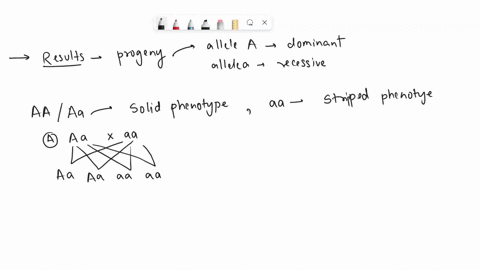 → Results → progeny → allele A → dominant
allele a → recessive
AA / Aa → solid phenotype , aa → striped phenotye
Ⓐ Aa x aa
Aa Aa aa aa